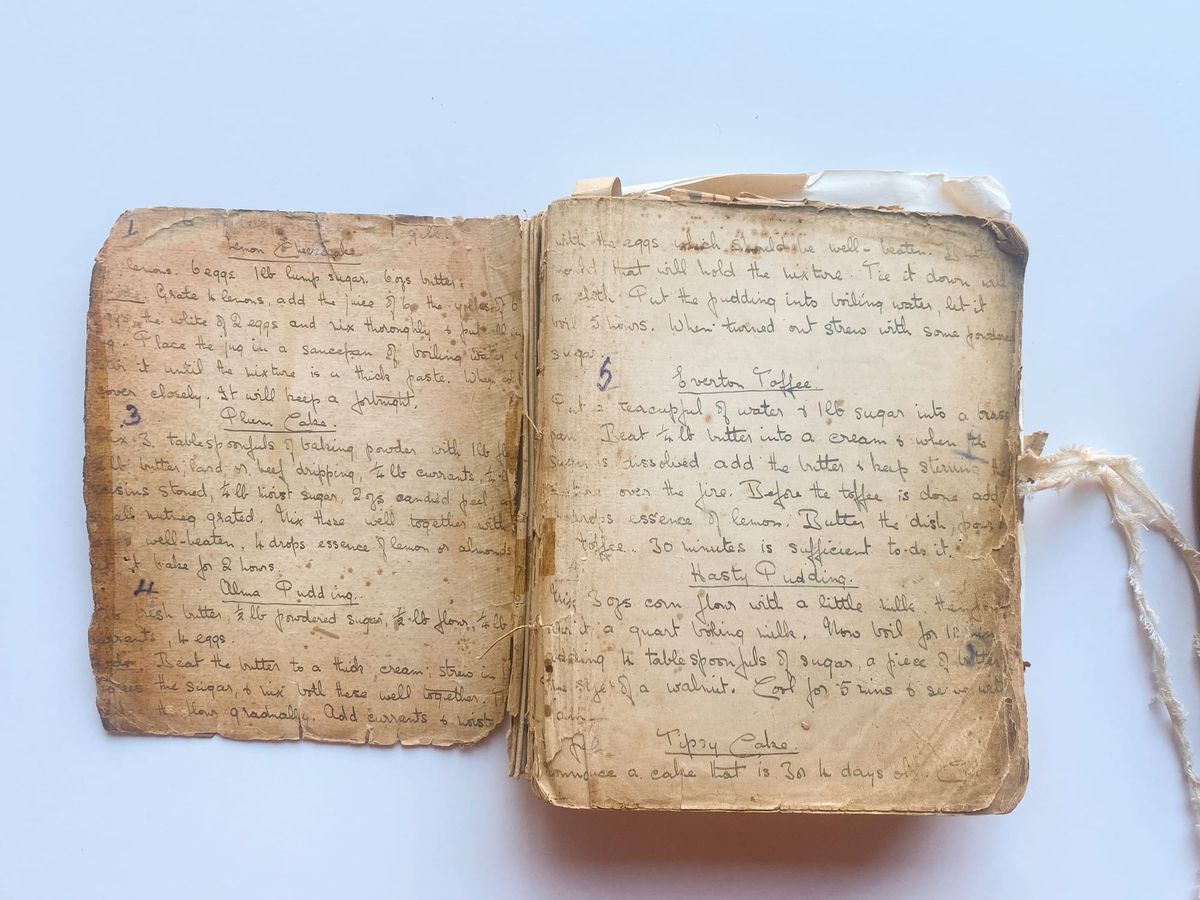 1
Lemon Cheesecake
lemons. 6 eggs 1lb lump sugar. 6ozs butter.
Grate 4 lemons, add the juice of 6 the yolks of 6
the white of 2 eggs and mix thoroughly & put all
Place the jug in a saucepan of boiling water
it until the mixture is a thick paste. When
cover closely. It will keep a fortnight.
3
Plum Cake.
Mix 3 tablespoonfuls of baking powder with 1lb
lb butter, lard, or beef dripping, ¼ lb currants,
stoned, ¼ lb moist sugar, 2 ozs candied peel
small nutmeg grated. Mix these well together with
well-beaten, 4 drops essence of lemon or almonds
bake for 2 hours.
4
Alma Pudding.
fresh butter, ½ lb powdered sugar, ½ lb flour, ¼ lb
currants, 4 eggs.
Beat the butter to a thick cream, strew in
the sugar, & mix both these well together.
the flour gradually. Add currants & moist
with the eggs which should be well-beaten.
mould that will hold the mixture. Tie it down with
a cloth. Put the pudding into boiling water, let it
boil 5 hours. When turned out strew with some powdered
sugar.
5
Everton Toffee.
Put a teacupful of water & 1lb sugar into a brass
pan. Beat ¼ lb butter into a cream & when the
sugar is dissolved add the butter & keep stirring the
mixture over the fire. Before the toffee is done add
drops essence of lemon. Butter the dish, pour
toffee. 30 minutes is sufficient to do it.
Hasty Pudding.
Mix 3 ozs corn flour with a little milk, then
it a quart boiling milk. Now boil for
adding 4 tablespoonfuls of sugar, a piece of butter
the size of a walnut. Cool for 5 mins & serve with
Tipsy Cake.
a cake that is 3 or 4 days old.